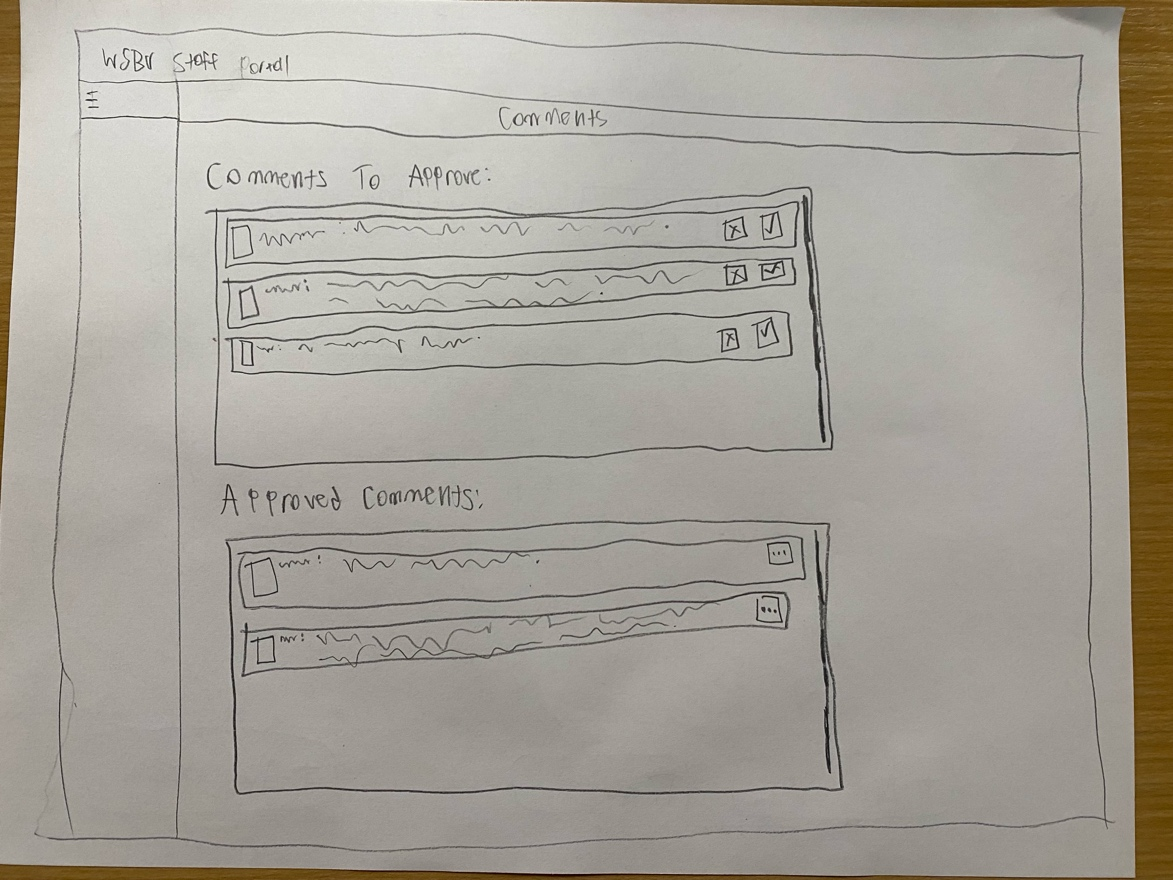 WSBV Staff Portal
Comments
Comments To Approve:
Approved Comments: